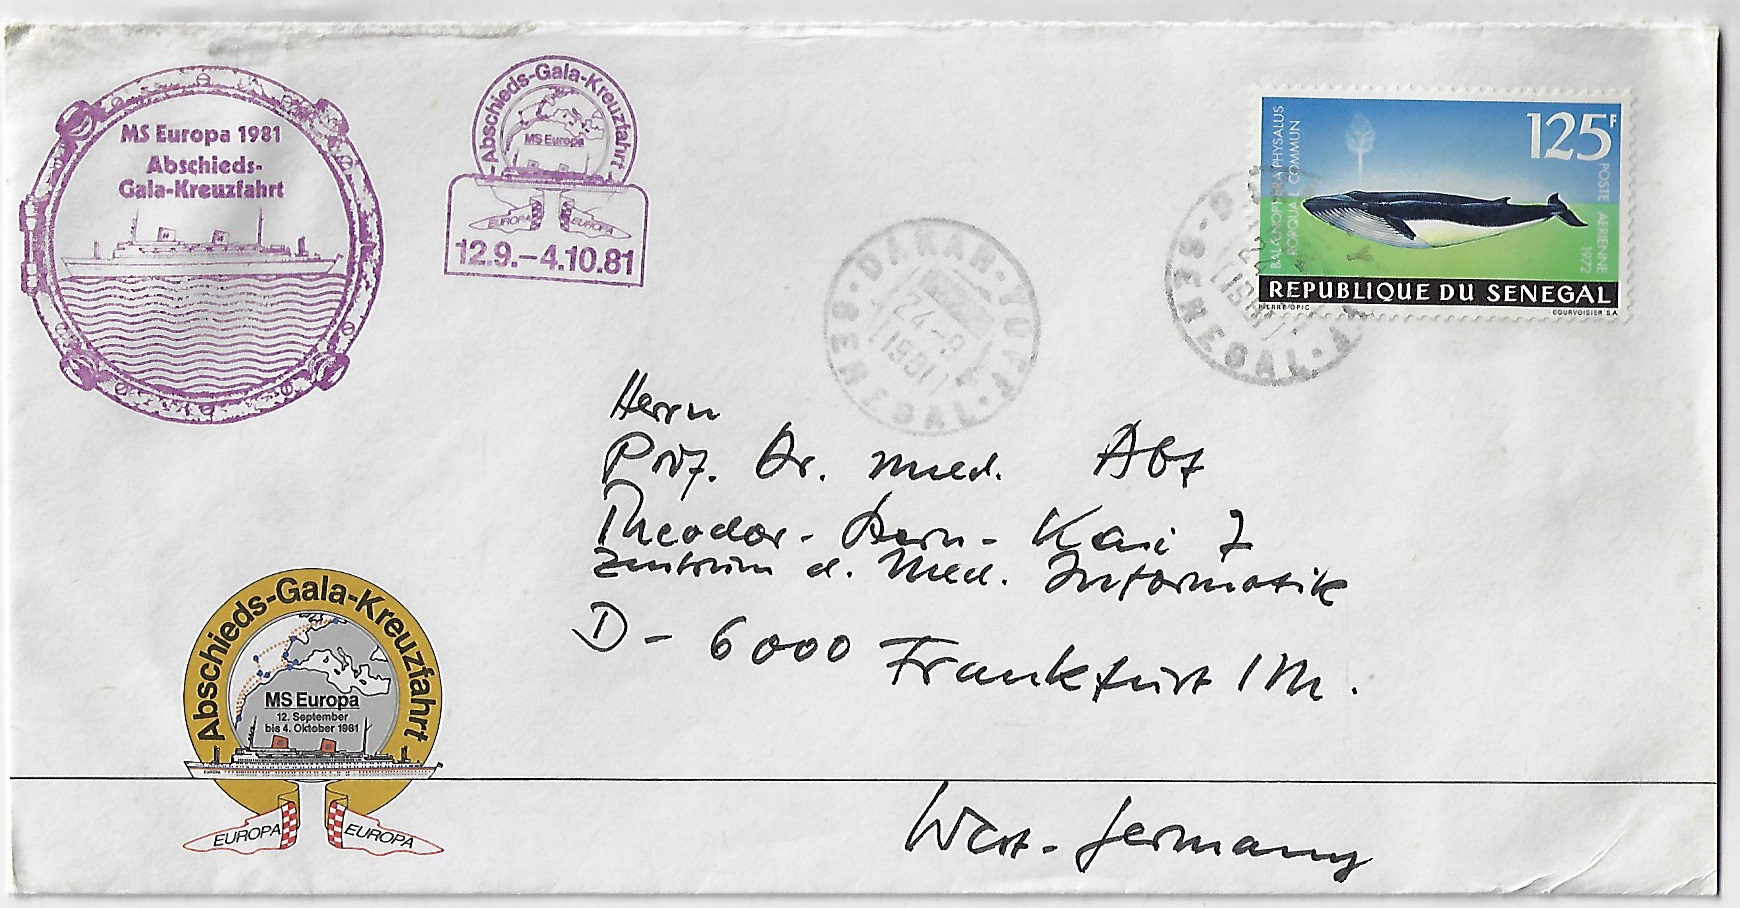 MS Europa 1981
Abschieds-
Gala-Kreuzfahrt
Abschieds-Gala-Kreuzfahrt
MS Europa
EUROPA EUROPA
12.9.-4.10.81
DAKAR-YOFF
24-9
1981
SENEGAL
125F
BALÆNOPTERA PHYSALUS
RORQUAL COMMUN
POSTE AERIENNE
1972
REPUBLIQUE DU SENEGAL
PIERRE OPIC
COURVOISIER S.A
1981
SENEGAL
Herrn
Prof. Dr. med. Abt
Theodor-Stern-Kai 7
Zentrum d. Med. Informatik
D-6000 Frankfurt/M.
West-Germany
Abschieds-Gala-Kreuzfahrt
MS Europa
12. September
bis 4. Oktober 1981
EUROPA EUROPA